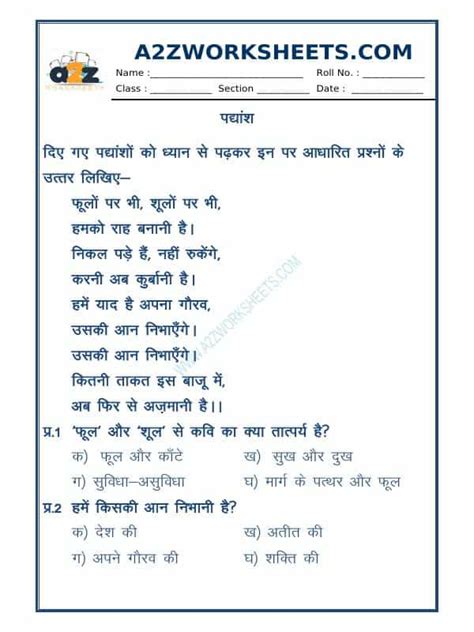 A2ZWORKSHEETS.COM
a2z
WORKSHEETS
Name :____________________ Roll No. : __________
Class : ________ Section _________ Date : __________
पद्यांश
दिए गए पद्यांशों को ध्यान से पढ़कर इन पर आधारित प्रश्नों के
उत्तर लिखिए–
फूलों पर भी, शूलों पर भी,
हमको राह बनानी है।
निकल पड़े हैं, नहीं रुकेंगे,
करनी अब कुर्बानी है।
हमें याद है अपना गौरव,
उसकी आन निभाएँगे।
उसकी आन निभाएँगे।
कितनी ताकत इस बाजू में,
अब फिर से अज़मानी है।।
WWW.A2ZWORKSHEETS.COM
प्र.1 ‘फूल’ और ‘शूल’ से कवि का क्या तात्पर्य है?
क) फूल और काँटे ख) सुख और दुख
ग) सुविधा–असुविधा घ) मार्ग के पत्थर और फूल
प्र.2 हमें किसकी आन निभानी है?
क) देश की ख) अतीत की
ग) अपने गौरव की घ) शक्ति की